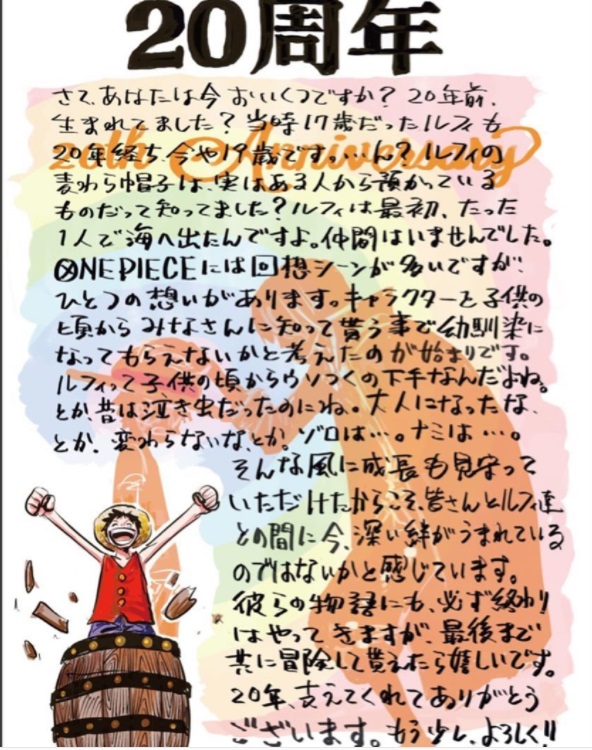 20周年
20th Anniversary
さて、あなたは今おいくつですか？20年前、
生まれてました？当時17歳だったルフィも
20年経ち、今や19歳です。…ん？ルフィの
麦わら帽子は、実はある人から預かっている
ものだって知ってました？ルフィは最初、たった
1人で海へ出たんですよ。仲間はいませんでした。
ONE PIECEには回想シーンが多いですが、
ひとつの想いがあります。キャラクターを子供の
頃からみなさんに知って貰う事で幼馴染に
なってもらえないかと考えたのが始まりです。
ルフィって子供の頃からウソつくの下手なんだよね。
とか昔は泣き虫だったのにね。大人になったな、
とか、変わらないな、とか。ゾロは…。ナミは…。
そんな風に成長も見守って
いただけたからこそ、皆さんとルフィ達
との間に今、深い絆がうまれている
のではないかと感じています。
彼らの物語にも、必ず終わり
はやってきますが、最後まで
共に冒険して貰えたら嬉しいです。
20年、支えてくれてありがとう
ございます。もう少し、よろしく!!